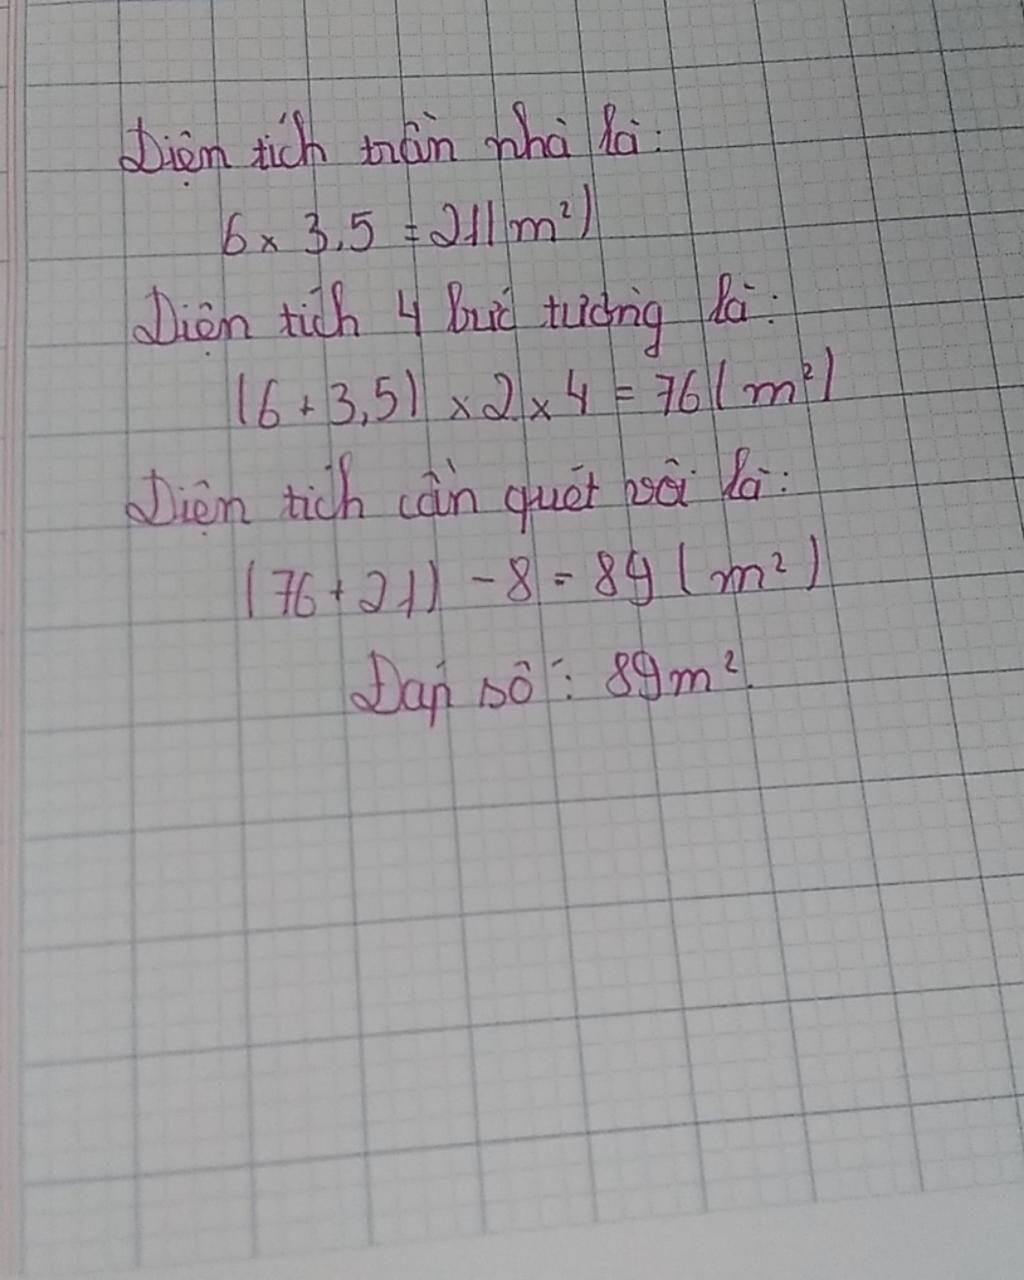 Diện tích trần nhà là:
6 x 3,5 = 21(m²)
Diện tích 4 bức tường là:
(6 + 3,5) x 2 x 4 = 76 (m²)
Diện tích cần quét vôi là:
(76 + 21) - 8 = 89 (m²)
Đáp số: 89m².